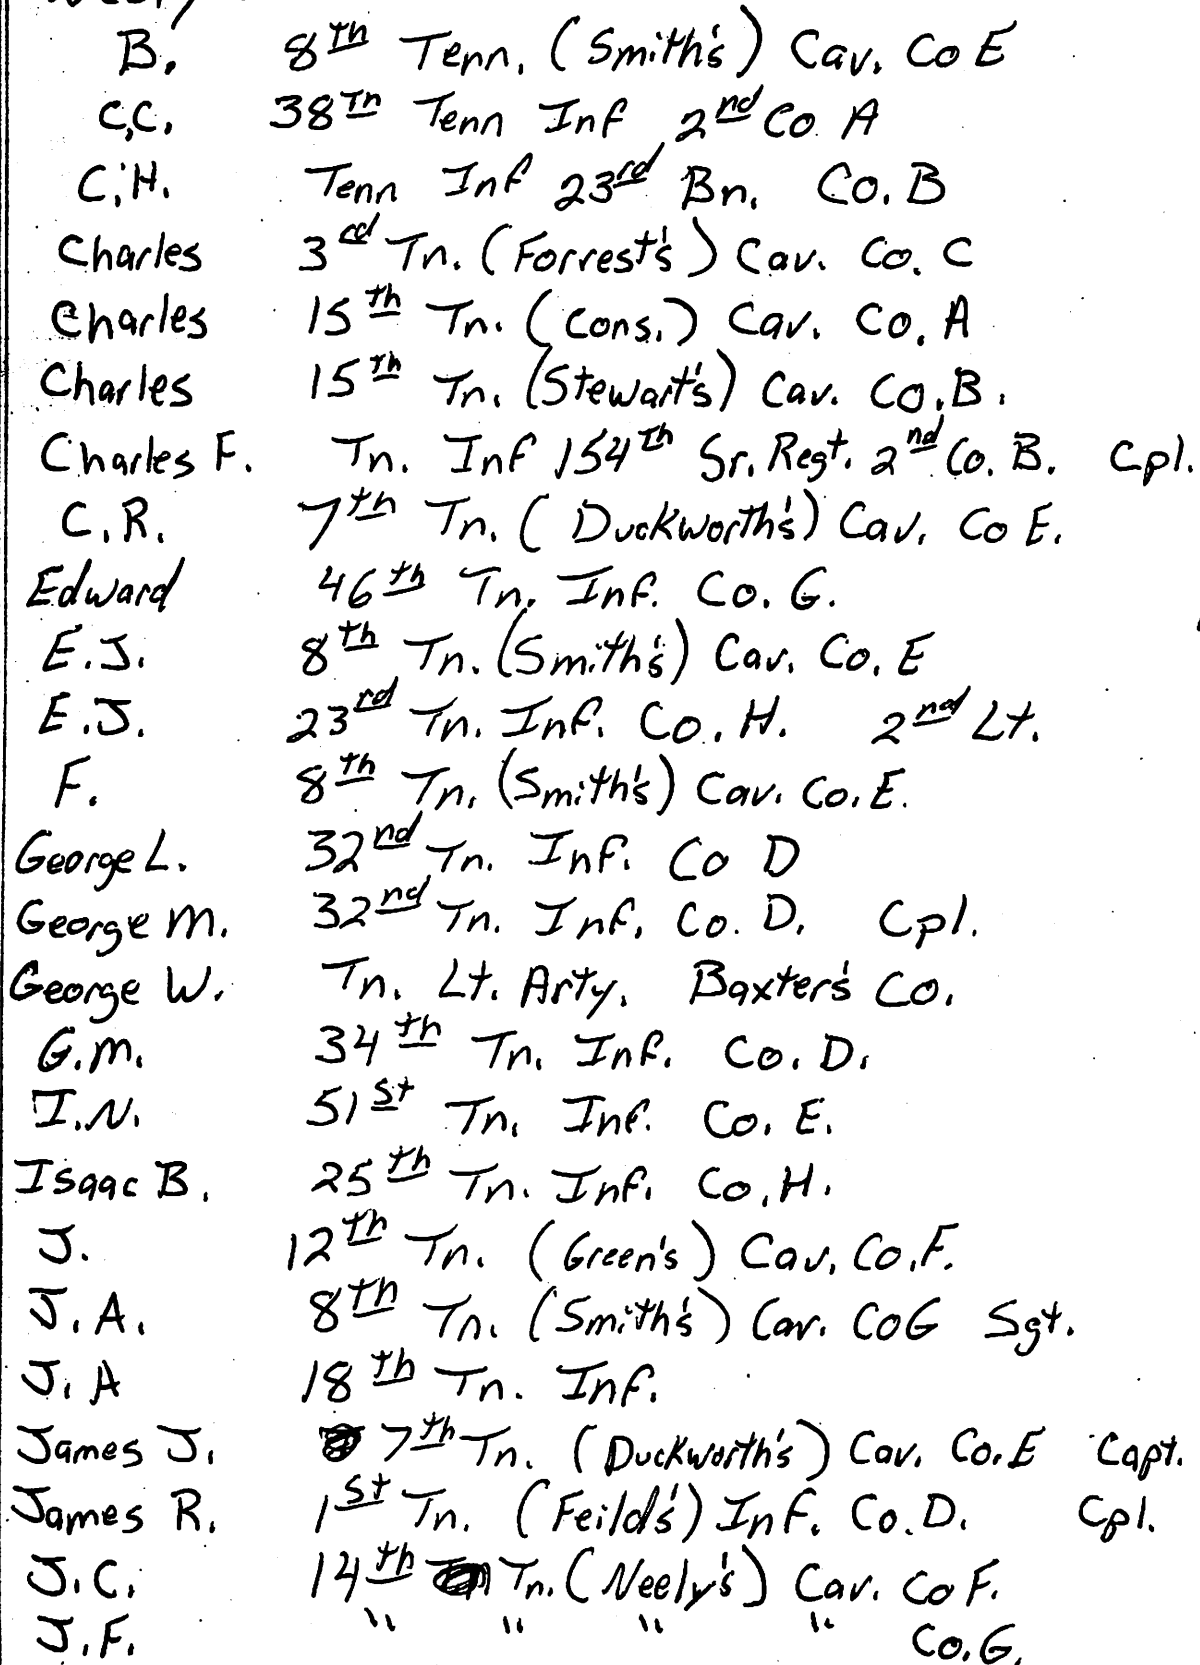 B. 8th Tenn. (Smith's) Cav. Co E
C.C. 38Th Tenn Inf 2nd Co A
C.H. Tenn Inf 23rd Bn. Co. B
Charles 3rd Tn. (Forrest's) Cav. Co. C
Charles 15th Tn. (Cons.) Cav. Co. A
Charles 15Th Tn. (Stewart's) Cav. Co. B.
Charles F. Tn. Inf 154Th Sr. Regt. 2nd Co. B. Cpl.
C.R. 7th Tn. (Duckworth's) Cav. Co E.
Edward 46th Tn. Inf. Co. G.
E.J. 8th Tn. (Smith's) Cav. Co. E
E.J. 23rd Tn. Inf. Co. H. 2nd Lt.
F. 8th Tn. (Smith's) Cav. Co. E.
George L. 32nd Tn. Inf. Co D
George M. 32nd Tn. Inf. Co. D. Cpl.
George W. Tn. Lt. Arty. Baxter's Co.
G.M. 34th Tn. Inf. Co. D.
I.N. 51st Tn. Inf. Co. E.
Isaac B. 25th Tn. Inf. Co. H.
J. 12th Tn. (Green's) Cav. Co. F.
J.A. 8th Tn. (Smith's) Cav. Co G Sgt.
J.A 18th Tn. Inf.
James J. 7th Tn. (Duckworth's) Cav. Co. E Capt.
James R. 1st Tn. (Feild's) Inf. Co. D. Cpl.
J.C. 14th Tn. (Neely's) Cav. Co F.
J.F. " " " " Co. G.